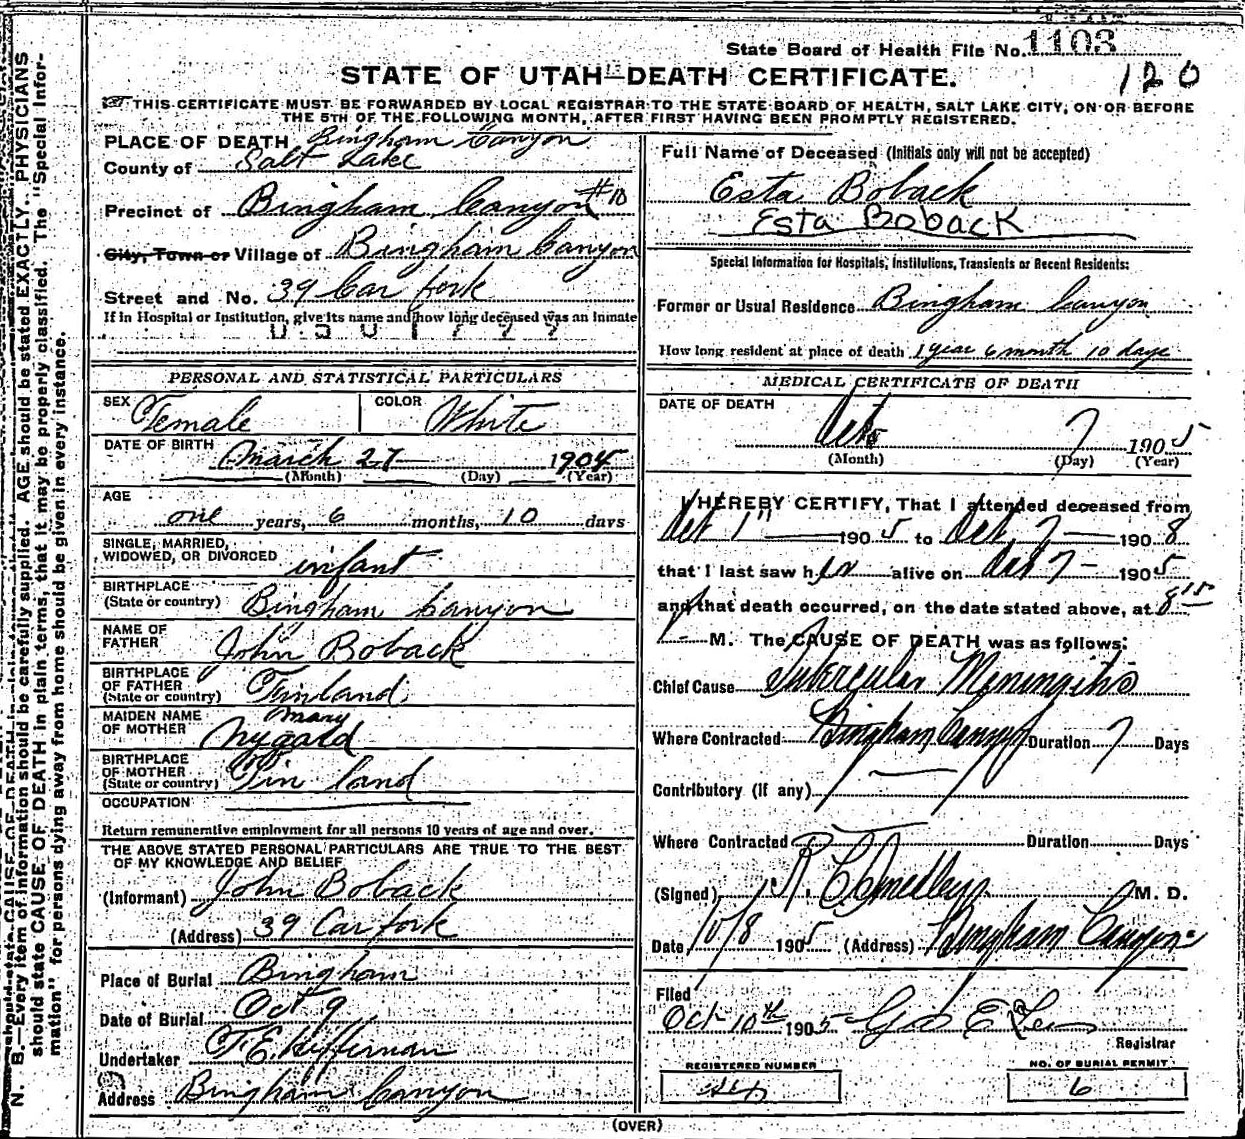 State Board of Health File No. 1103
120
STATE OF UTAH—DEATH CERTIFICATE.
THIS CERTIFICATE MUST BE FORWARDED BY LOCAL REGISTRAR TO THE STATE BOARD OF HEALTH, SALT LAKE CITY, ON OR BEFORE
THE 5TH OF THE FOLLOWING MONTH, AFTER FIRST HAVING BEEN PROMPTLY REGISTERED.
PLACE OF DEATH Bingham Canyon
County of Salt Lake
Precinct of Bingham Canyon #10
City, Town or Village of Bingham Canyon
Street and No. 39 Car fork
If in Hospital or Institution, give its name and how long deceased was an inmate
PERSONAL AND STATISTICAL PARTICULARS
SEX Female COLOR White
DATE OF BIRTH March 27 1904
(Month) (Day) (Year)
AGE
one years, 6 months, 10 days
SINGLE, MARRIED,
WIDOWED, OR DIVORCED infant
BIRTHPLACE
(State or country) Bingham Canyon
NAME OF
FATHER John Boback
BIRTHPLACE
OF FATHER
(State or country) Finland
MAIDEN NAME
OF MOTHER Mary
Nygard
BIRTHPLACE
OF MOTHER
(State or country) Finland
OCCUPATION
Return remunerative employment for all persons 10 years of age and over.
THE ABOVE STATED PERSONAL PARTICULARS ARE TRUE TO THE BEST
OF MY KNOWLEDGE AND BELIEF
(Informant) John Boback
(Address) 39 Car fork
Place of Burial Bingham
Date of Burial Oct 9
Undertaker F. E. Hiffernan
Address Bingham Canyon
Full Name of Deceased (Initials only will not be accepted)
Esta Boback
Esta Boback
Special Information for Hospitals, Institutions, Transients or Recent Residents:
Former or Usual Residence Bingham Canyon
How long resident at place of death 1 year 6 month 10 days
MEDICAL CERTIFICATE OF DEATH
DATE OF DEATH
Oct 7 1905
(Month) (Day) (Year)
I HEREBY CERTIFY, That I attended deceased from
Oct 1st 1905 to Oct 7 1908
that I last saw her alive on Oct 7 1905
and that death occurred, on the date stated above, at 8 15
P M. The CAUSE OF DEATH was as follows:
Chief Cause Tubercular Meningitis
Where Contracted Bingham Canyon Duration 7 Days
Contributory (If any)
Where Contracted Duration Days
(Signed) M. D.
Date 10/8 1905 (Address) Bingham Canyon
Filed
Oct 10th 1905 Registrar
REGISTERED NUMBER
NO. OF BURIAL PERMIT
6
(OVER)
N. B.—Every item of information should be carefully supplied. AGE should be stated EXACTLY. PHYSICIANS
should state CAUSE OF DEATH in plain terms, that it may be properly classified. The "Special Infor-
mation" for persons dying away from home should be given in every instance.